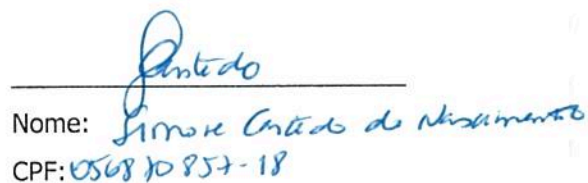 Castedo
Nome: Simone Castedo do Nascimento
CPF: 056870857-18